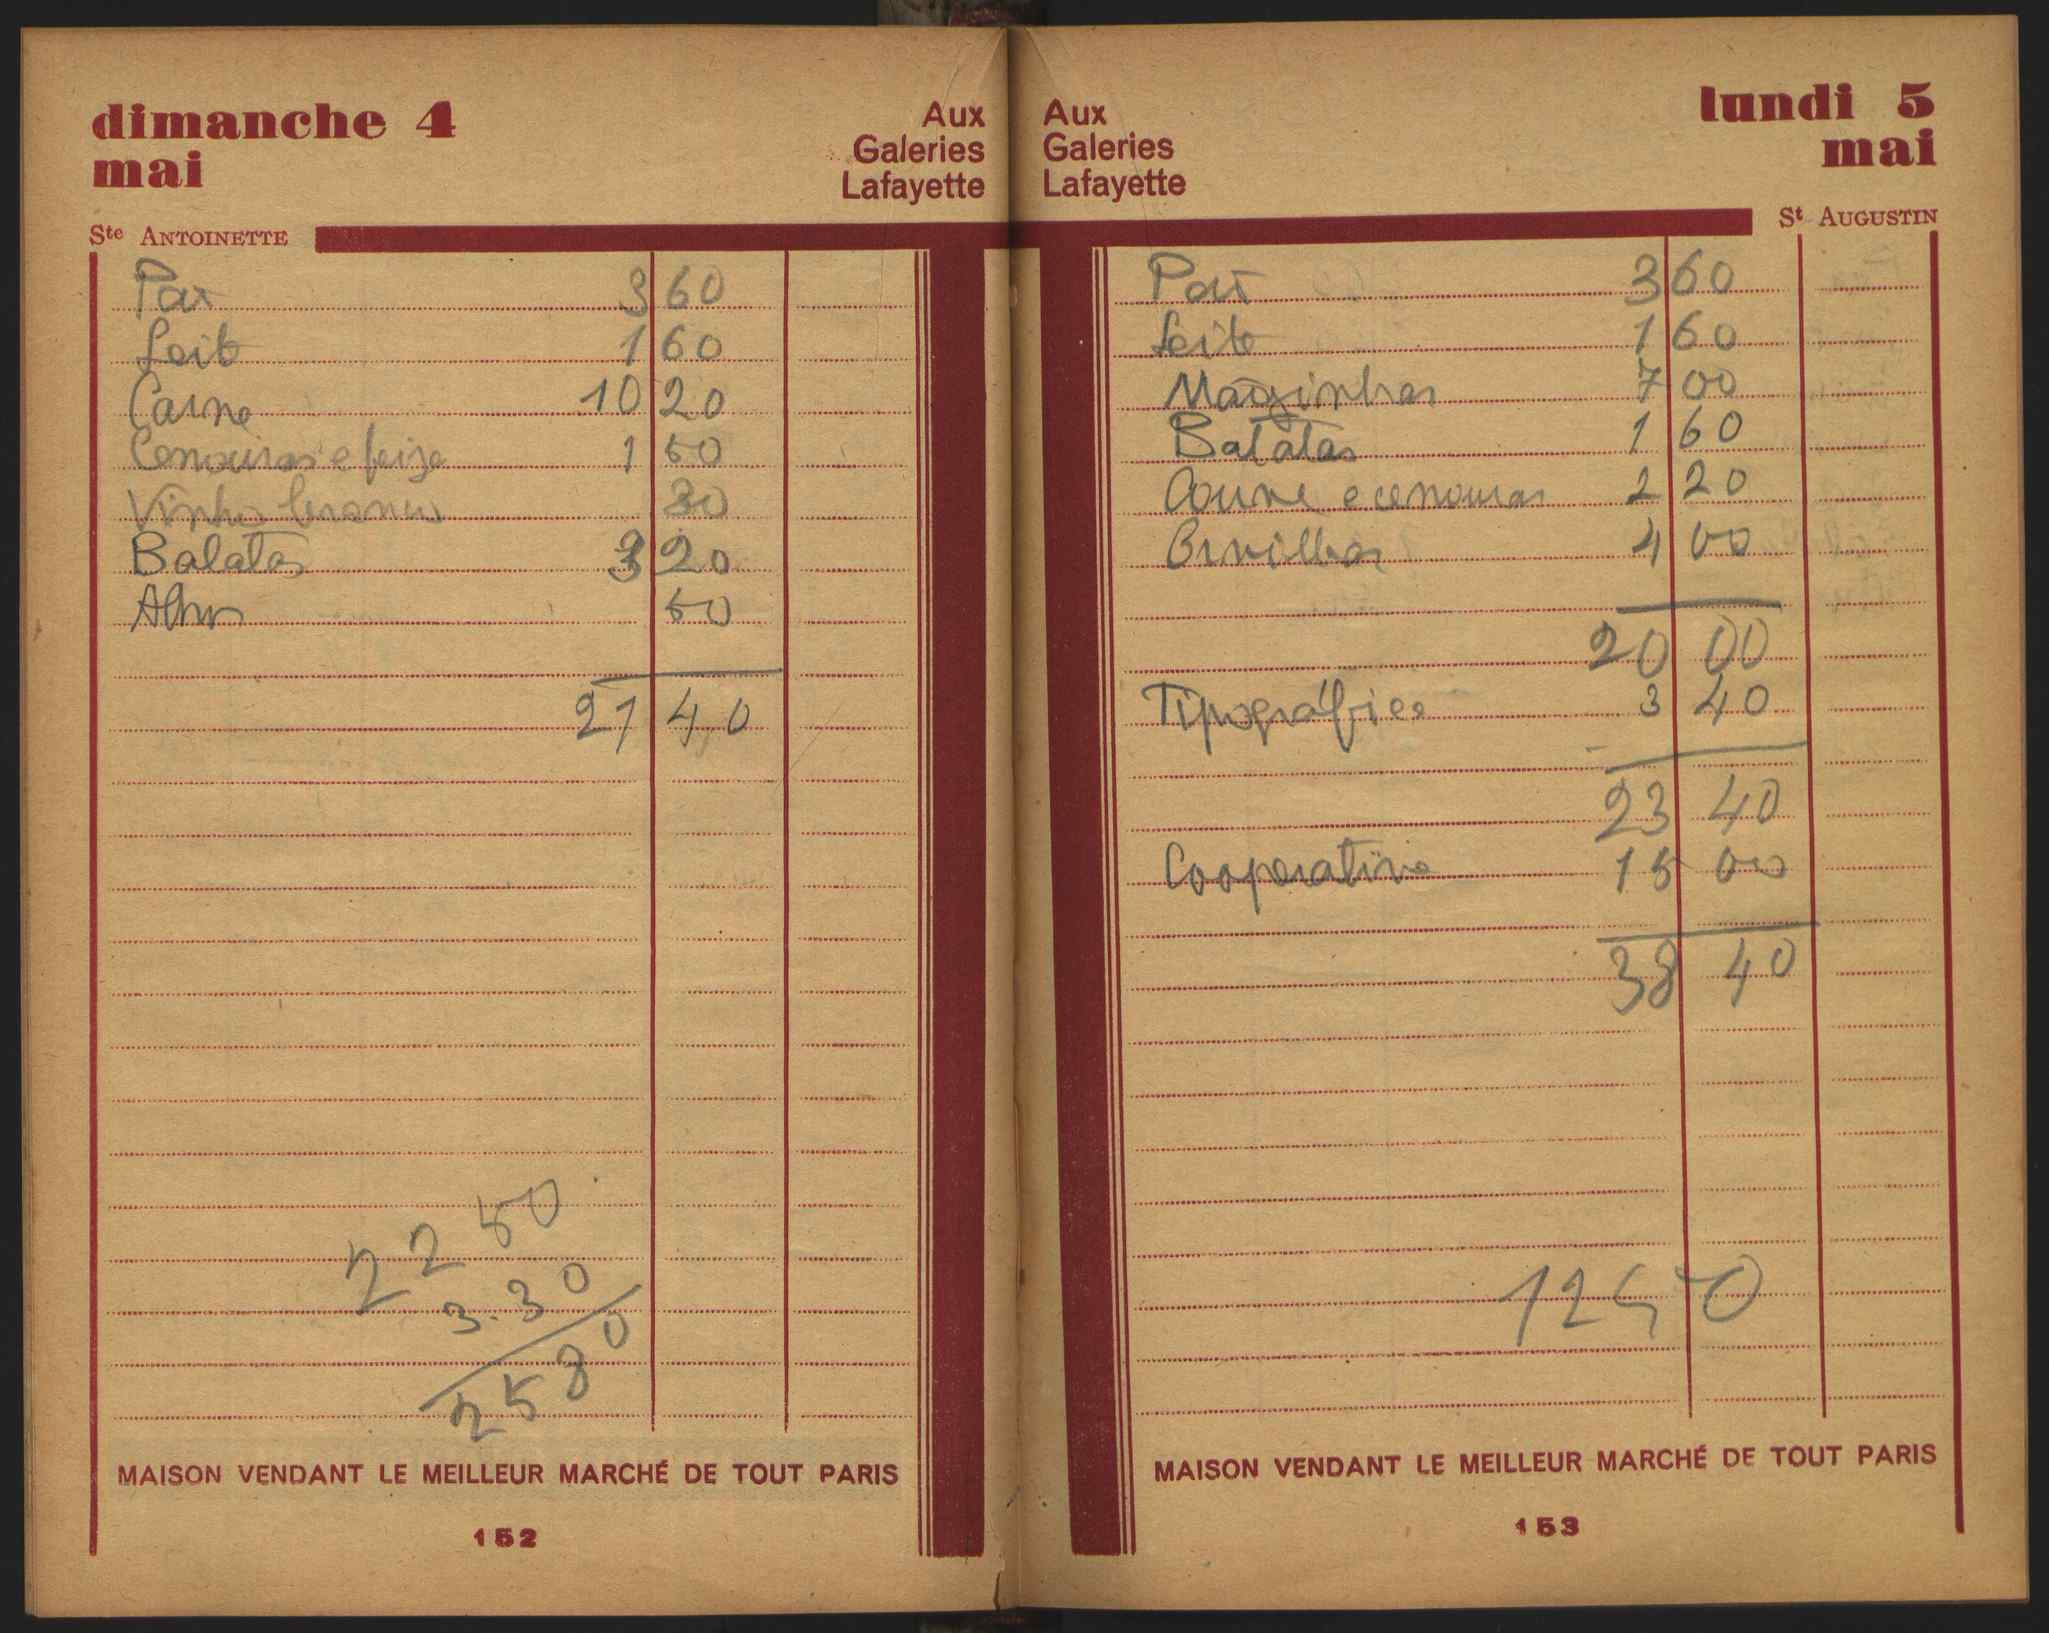 dimanche 4
mai
Aux
Galeries
Lafayette
Ste ANTOINETTE
Pão 3 60
Leite 1 60
Carne 10 20
Cenouras e feijão 1 50
Vinho branco 30
Batatas 3 20
Alhos 50
21 40
22 50
3.30
25 80
MAISON VENDANT LE MEILLEUR MARCHÉ DE TOUT PARIS
152
Aux
Galeries
Lafayette
lundi 5
mai
St AUGUSTIN
Pão 3 60
Leite 1 60
Mãozinhas 7 00
Batatas 1 60
Couve e cenouras 2 20
Ervilhas 4 00
20 00
Tipográfico 3 40
23 40
Cooperativa 15 00
38 40
1250
MAISON VENDANT LE MEILLEUR MARCHÉ DE TOUT PARIS
153